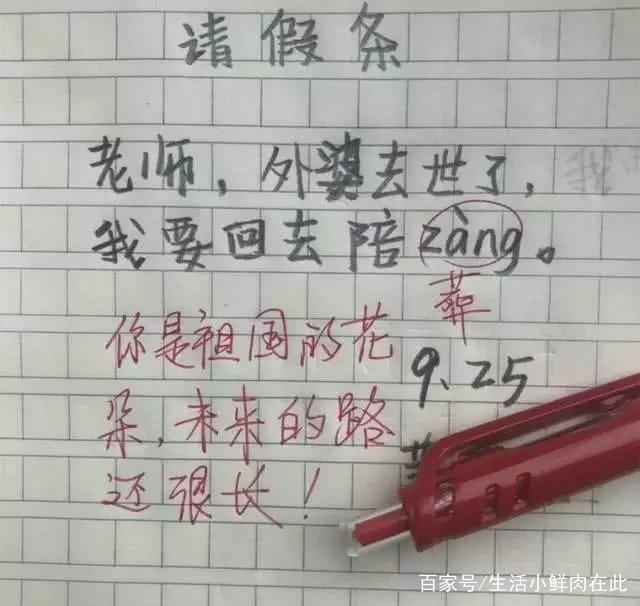 请假条
老师，外婆去世了，
我要回去陪zàng。
葬
你是祖国的花
朵，未来的路
还很长！
9.25
百家号/生活小鲜肉在此